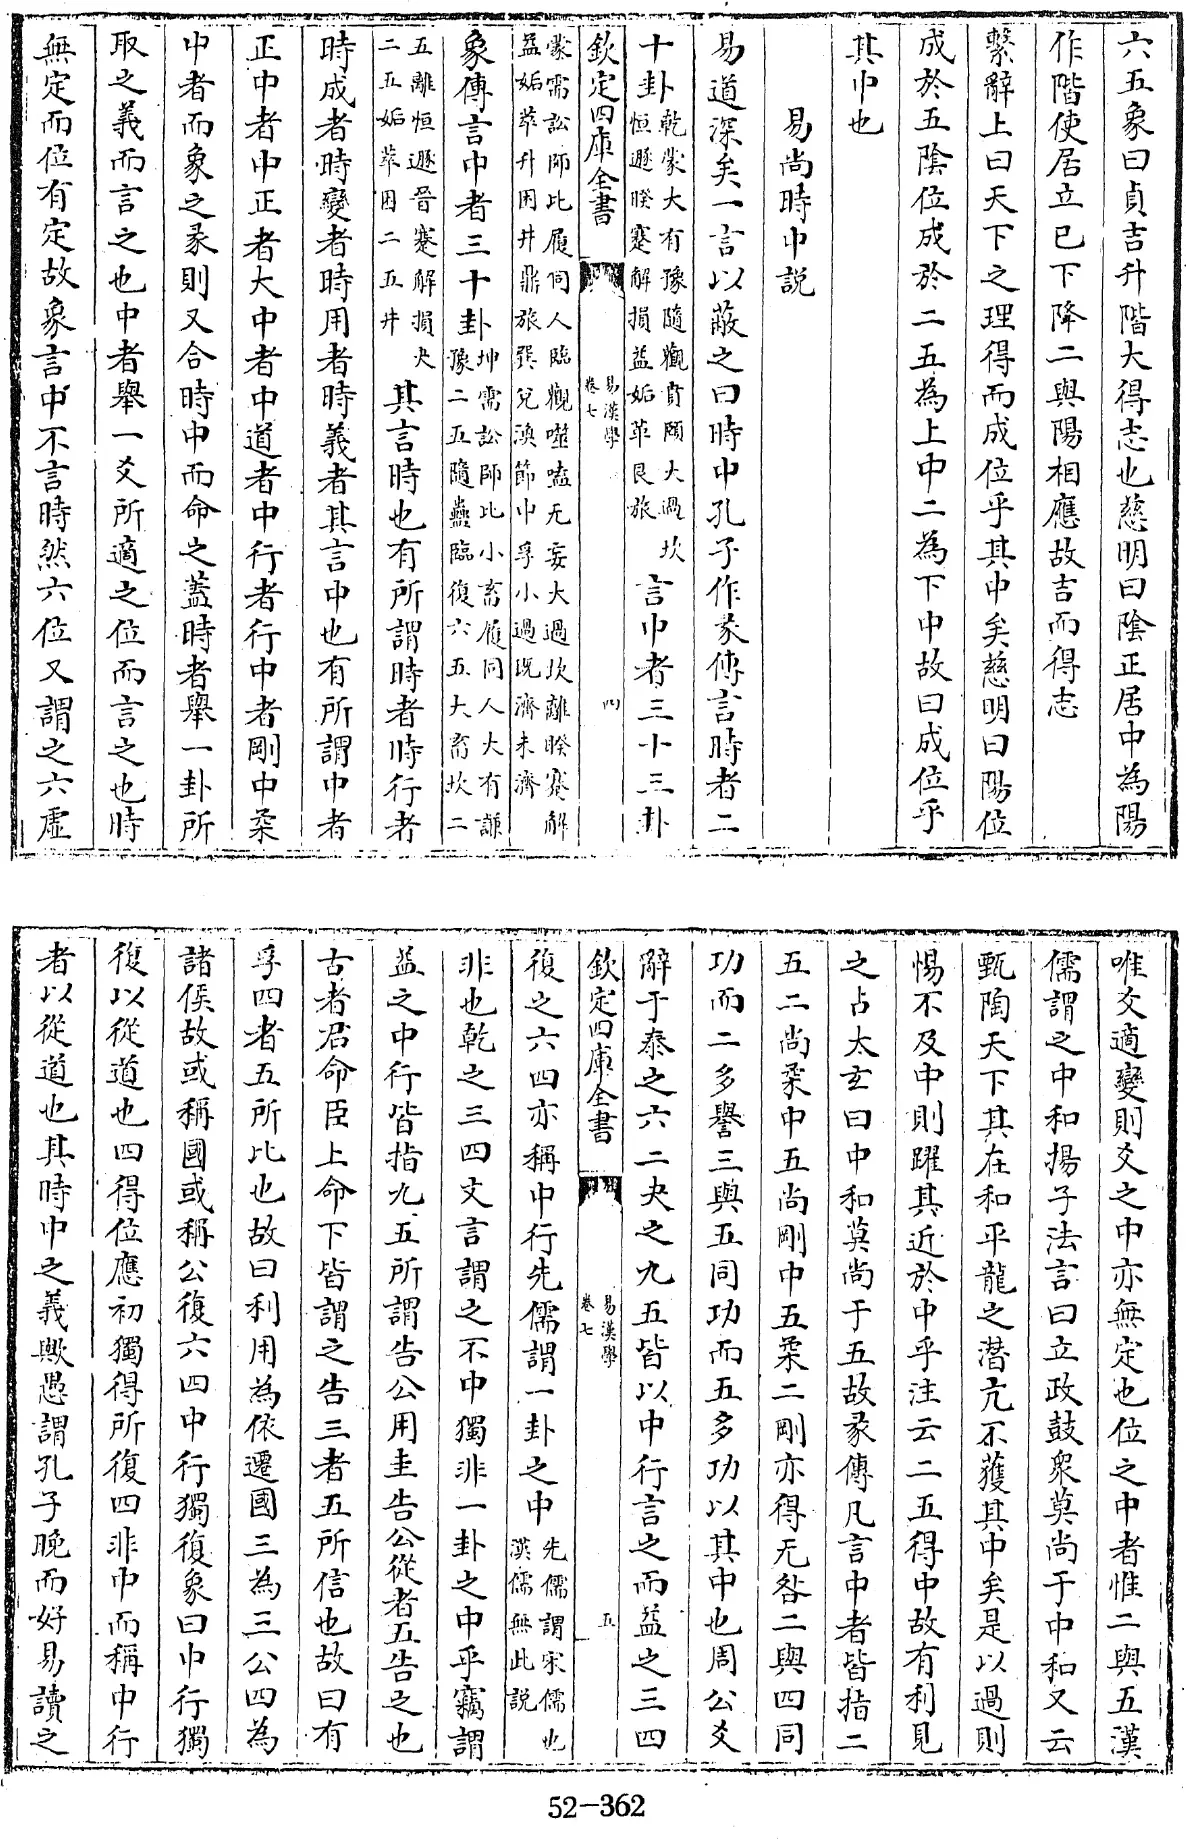 六五象曰貞吉升階大得志也慈明曰陰正居中為陽
作階使居立已下降二與陽相應故吉而得志
繫辭上曰天下之理得而成位乎其中矣慈明曰陽位
成於五陰位成於二五為上中二為下中故曰成位乎
其中也
易尚時中説
易道深矣一言以蔽之曰時中孔子作彖傳言時者二
十卦乾蒙大有豫隨觀賁頤大過坎恒遯睽蹇解損益姤革艮旅言中者三十三卦
欽定四庫全書 易漢學 卷七 四
蒙需訟師比履同人臨觀噬嗑无妄大過坎離睽蹇解
益姤萃升困井鼎旅巽兌渙節中孚小過既濟未濟
象傳言中者三十卦坤需訟師比小畜履同人大有謙豫二五隨蠱臨復六五大畜坎二
五離恒遯晉蹇解損夬二五姤萃困二五井其言時也有所謂時者時行者
時成者時變者時用者時義者其言中也有所謂中者
正中者中正者大中者中道者中行者行中者剛中柔
中者而象之彖則又合時中而命之蓋時者舉一卦所
取之義而言之也中者舉一爻所適之位而言之也時
無定而位有定故象言中不言時然六位又謂之六虛
唯爻適變則爻之中亦無定也位之中者惟二與五漢
儒謂之中和揚子法言曰立政鼓衆莫尚于中和又云
甄陶天下其在和乎龍之潜亢不獲其中矣是以過則
惕不及中則躍其近於中乎注云二五得中故有利見
之占太玄曰中和莫尚于五故彖傳凡言中者皆指二
五二尚柔中五尚剛中五柔二剛亦得无咎二與四同
功而二多譽三與五同功而五多功以其中也周公爻
辭于泰之六二夬之九五皆以中行言之而益之三四
欽定四庫全書 易漢學 卷七 五
復之六四亦稱中行先儒謂一卦之中先儒謂宋儒也漢儒無此説
非也乾之三四文言謂之不中獨非一卦之中乎竊謂
益之中行皆指九五所謂告公用圭告公從者五告之也
古者君命臣上命下皆謂之告三者五所信也故曰有
孚四者五所比也故曰利用為依遷國三為三公四為
諸侯故或稱國或稱公復六四中行獨復象曰中行獨
復以從道也四得位應初獨得所復四非中而稱中行
者以從道也其時中之義歟愚謂孔子晚而好易讀之
52-362